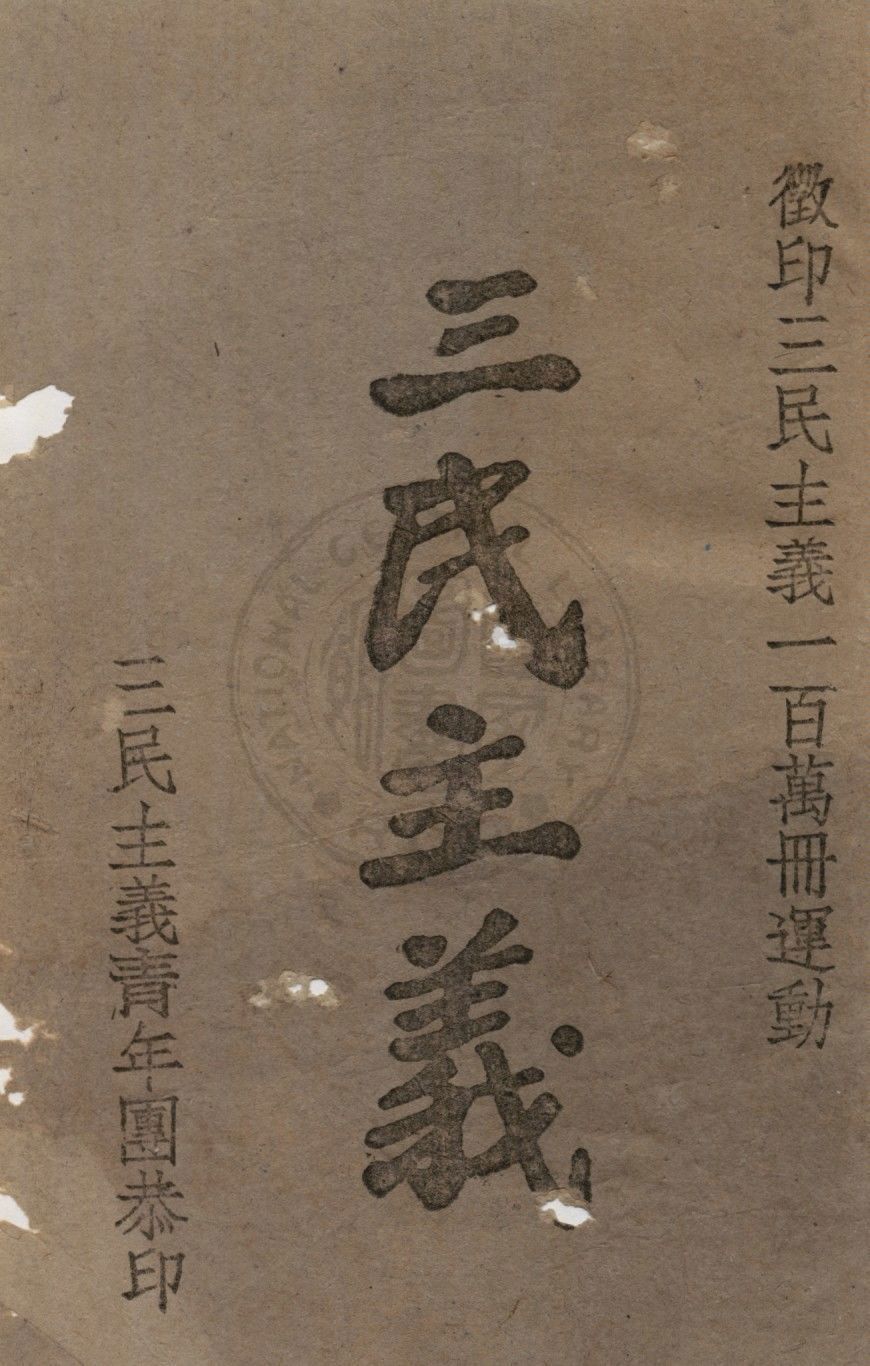 徵印三民主義一百萬冊運動
三民主義
三民主義青年團恭印